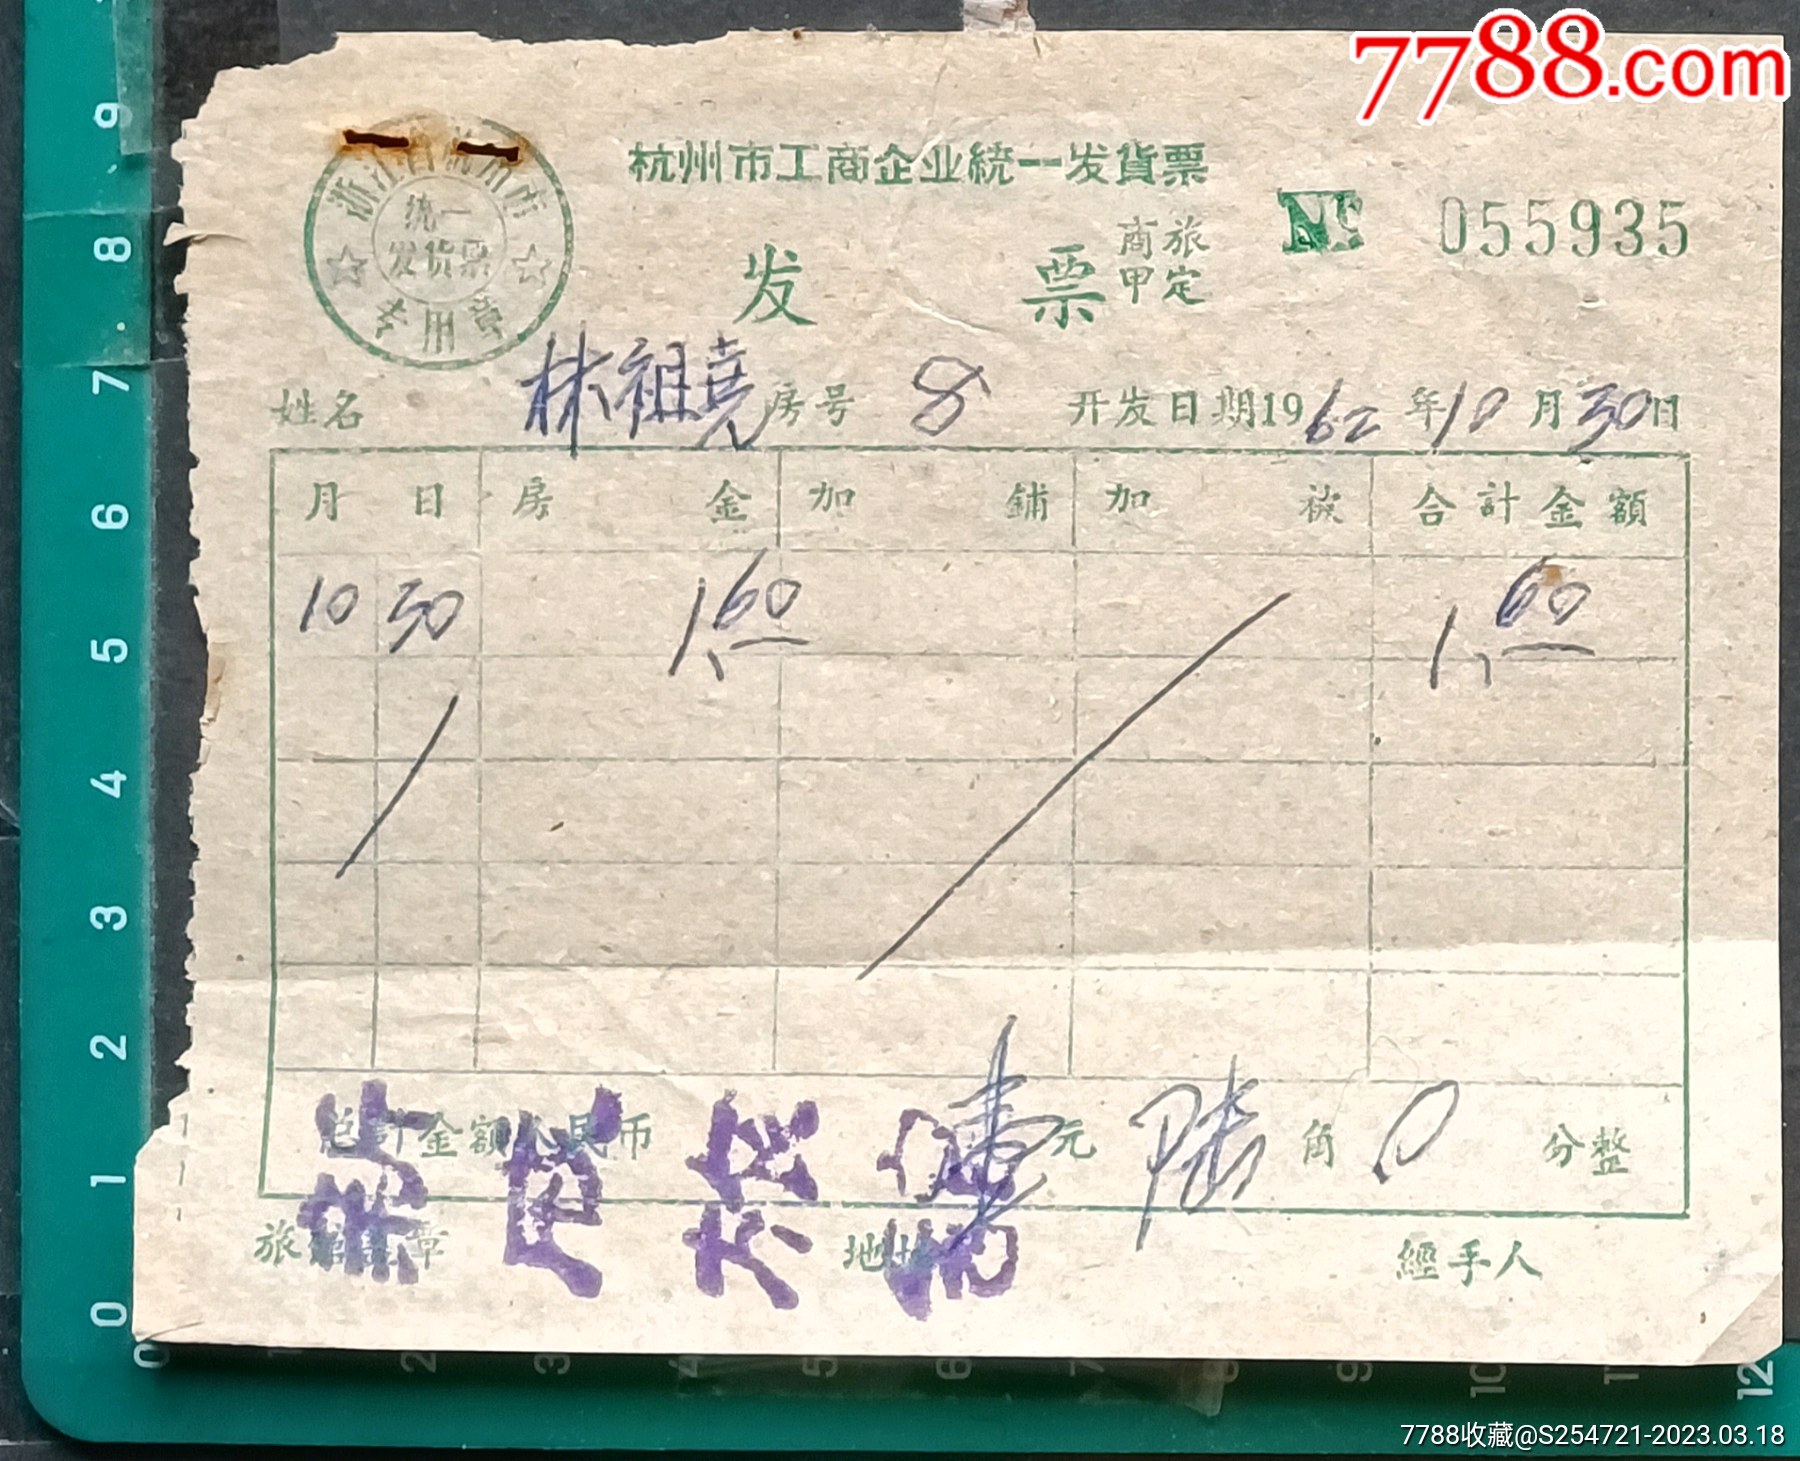 7788.com
杭州市工商企业統一发貨票
浙江省杭州市
统一
发货票
专用章
发 票
商旅
甲定
№ 055935
姓名 林祖堯 房号 8 开发日期1962年10月30日
月 日 房 金 加 鋪 加 被 合計金額
10 30 1,60 1,60
总計金額人民币 壹元 陆角 0 分整
旅 章 地址 經手人
9
8
7
6
5
4
3
2
1
0
0 1 2 3 4 5 6 7 8 9 10 11 12
7788收藏@S254721-2023.03.18